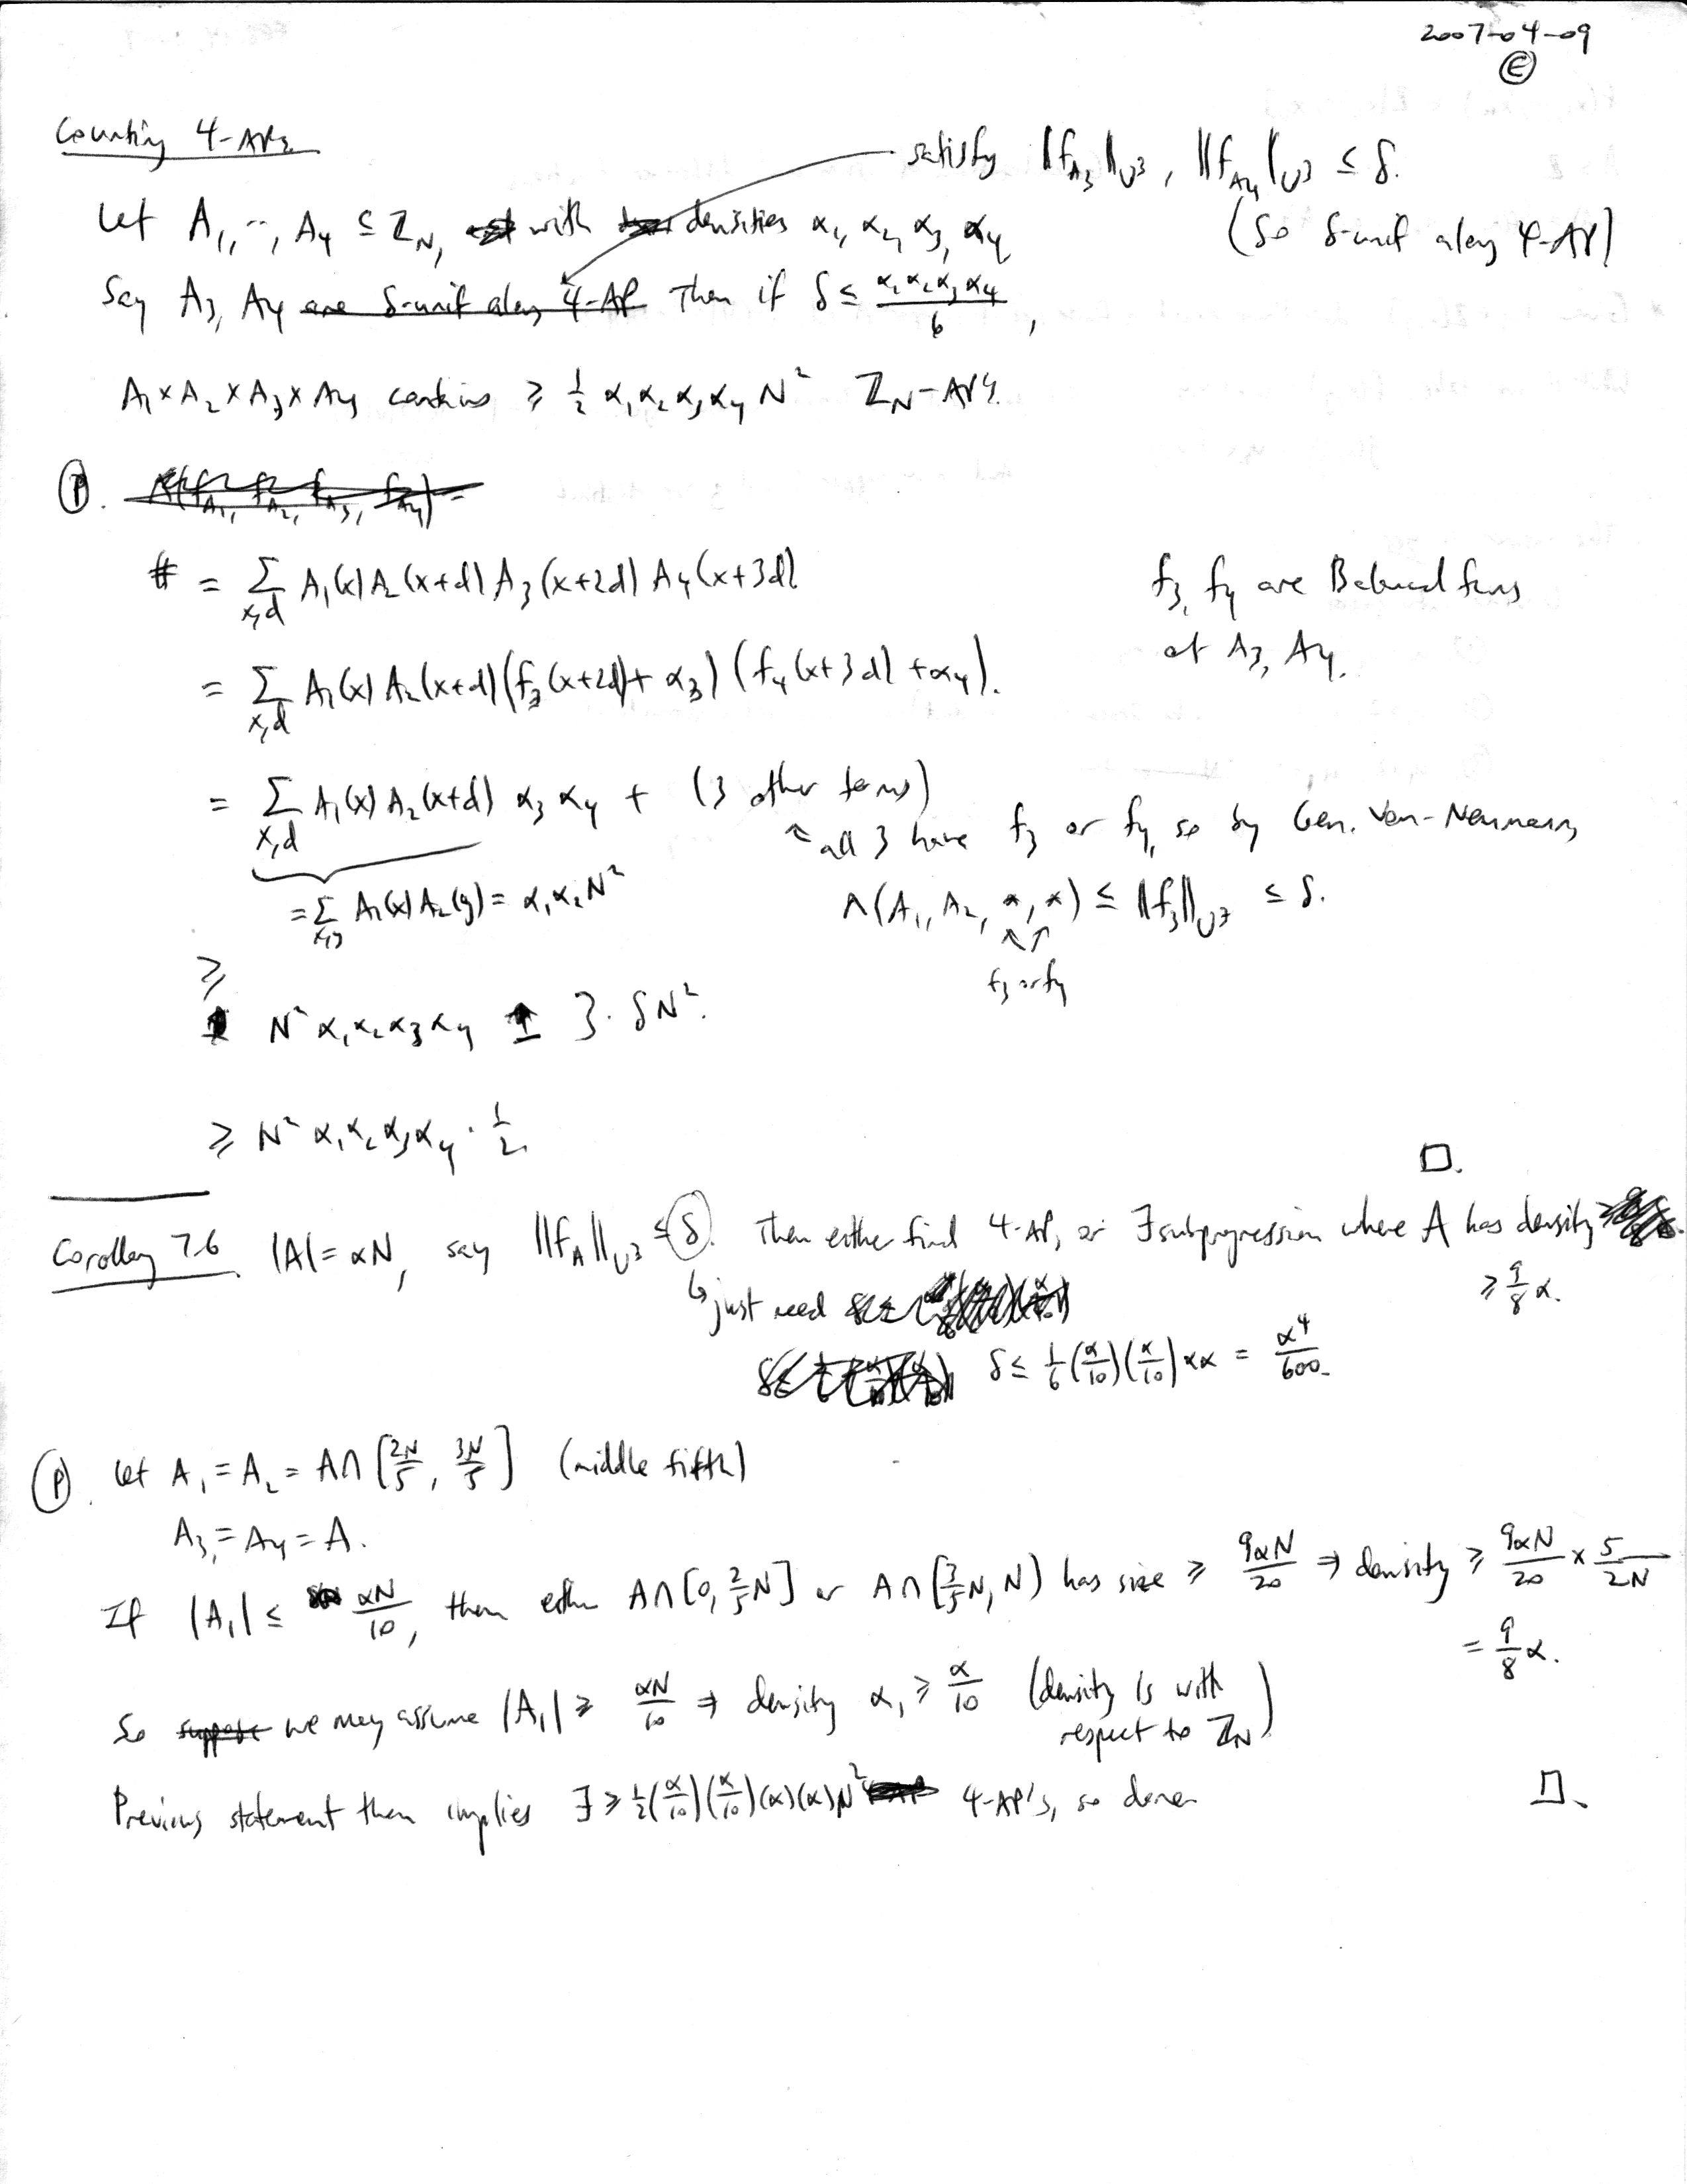 2007-04-09
Ⓔ
Counting 4-APs
satisfy ‖f_{A_3}‖_{U^3}, ‖f_{A_4}‖_{U^3} ≤ δ.
Let A_1, ..., A_4 ⊆ Z_N, with densities α_1, α_2, α_3, α_4
(So δ-unif along 4-AP)
Say A_3, A_4 are δ-unif along 4-AP Then if δ ≤ α_1α_2α_3α_4/6,
A_1 × A_2 × A_3 × A_4 contains ≥ 1/2 α_1α_2α_3α_4 N^2 Z_N-AP4.
Ⓟ. Λ(f_{A_1}, f_{A_2}, f_{A_3}, f_{A_4}) =
# = Σ_{x,d} A_1(x) A_2(x+d) A_3(x+2d) A_4(x+3d)
f_3, f_4 are Balanced fcns
of A_3, A_4.
= Σ_{x,d} A_1(x) A_2(x+d) (f_3(x+2d) + α_3) (f_4(x+3d) + α_4).
= Σ_{x,d} A_1(x) A_2(x+d) α_3 α_4 + (3 other terms)
↖ all 3 have f_3 or f_4, so by Gen. Von-Neumann,
= Σ_{x,y} A_1(x) A_2(y) = α_1α_2N^2
Λ(A_1, A_2, *, *) ≤ ‖f_3‖_{U^3} ≤ δ.
f_3 or f_4
≥
N^2 α_1α_2α_3α_4 ± 3·δN^2.
≥ N^2 α_1α_2α_3α_4 · 1/2.
□.
Corollary 7.6. |A| = αN, say ‖f_A‖_{U^3} ≤ δ. Then either find 4-AP, or ∃ subprogression where A has density
≥ 9/8 α.
↳ just need
δ ≤ 1/6 (α/10)(α/10) αα = α^4/600.
Ⓟ. Let A_1 = A_2 = A ∩ [2N/5, 3N/5] (middle fifth)
A_3 = A_4 = A.
If |A_1| ≤ αN/10, then either A ∩ [0, 2/5 N] or A ∩ [3/5 N, N) has size ≥ 9αN/20 ⇒ density ≥ 9αN/20 × 5/2N
= 9/8 α.
So suppose we may assume |A_1| ≥ αN/10 ⇒ density α_1 ≥ α/10 (density is with
respect to Z_N)
Previous statement then implies ∃ ≥ 1/2 (α/10)(α/10)(α)(α)N^2 4-AP's, so done.
□.